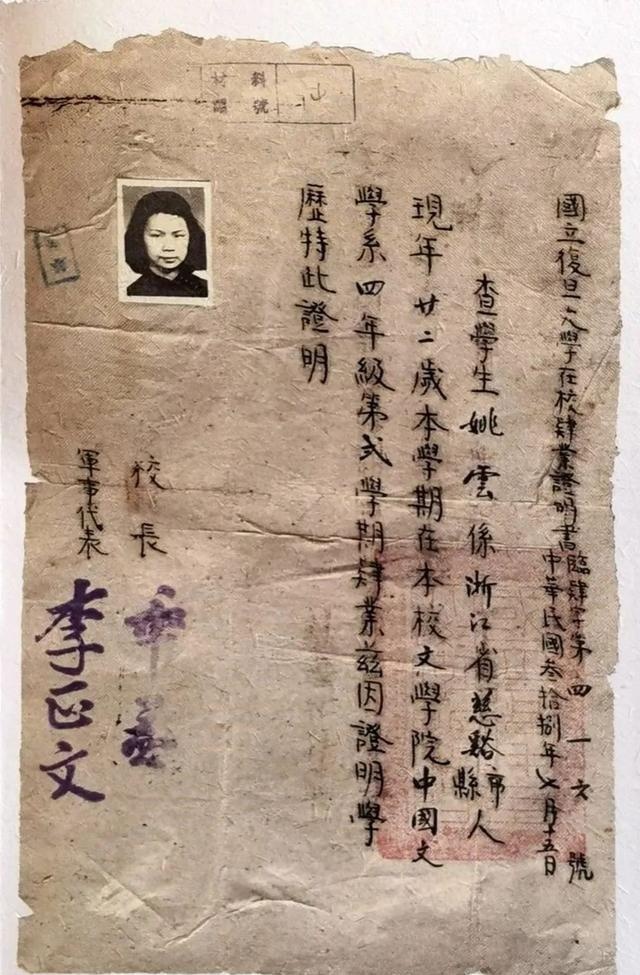 材料
證號
國立復旦大學在校肄業證明書臨肄字第四一六號
中華民國叁拾捌年七月十五日
查學生姚雲係浙江省慈谿縣市人
現年廿二歲本學期在本校文學院中國文
學系四年級第弍學期肄業茲因證明學
歷特此證明
校長
軍事代表
李正文